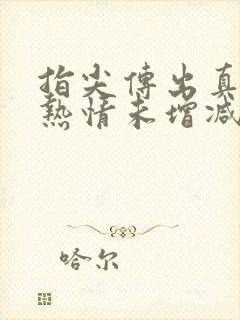 指尖傳出真
熱情未增减
哈尔